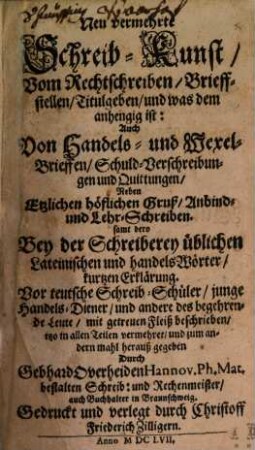 Neu vermehrte
Schreib-Kunst/
Vom Rechtschreiben/Brieff-
stellen/Titulgeben/und was dem
anhengig ist:
Auch
Von Handels- und Wexel-
Brieffen/Schuld-Verschreibun-
gen und Quittungen/
Neben
Etzlichen höflichen Gruß/Anbind-
und Lehr-Schreiben.
samt dero
Bey der Schreiberey üblichen
Lateinischen und handels Wörter/
kurtzen Erklärung.
Vor teutsche Schreib-Schüler/junge
Handels-Diener/und andere des begehren-
de Leute/mit getreuen Fleiß beschrieben/
itzo in allen Teilen vermehret/und zum an-
dern mahl herauß gegeben
Durch
Gebhard Overheiden Hannov. Ph. Mat.
bestalten Schreib: und Rechenmeister/
auch Buchhalter in Braunschweig.
Gedruckt und verlegt durch Christoff
Friederich Zilligern.
Anno MDC LVII.